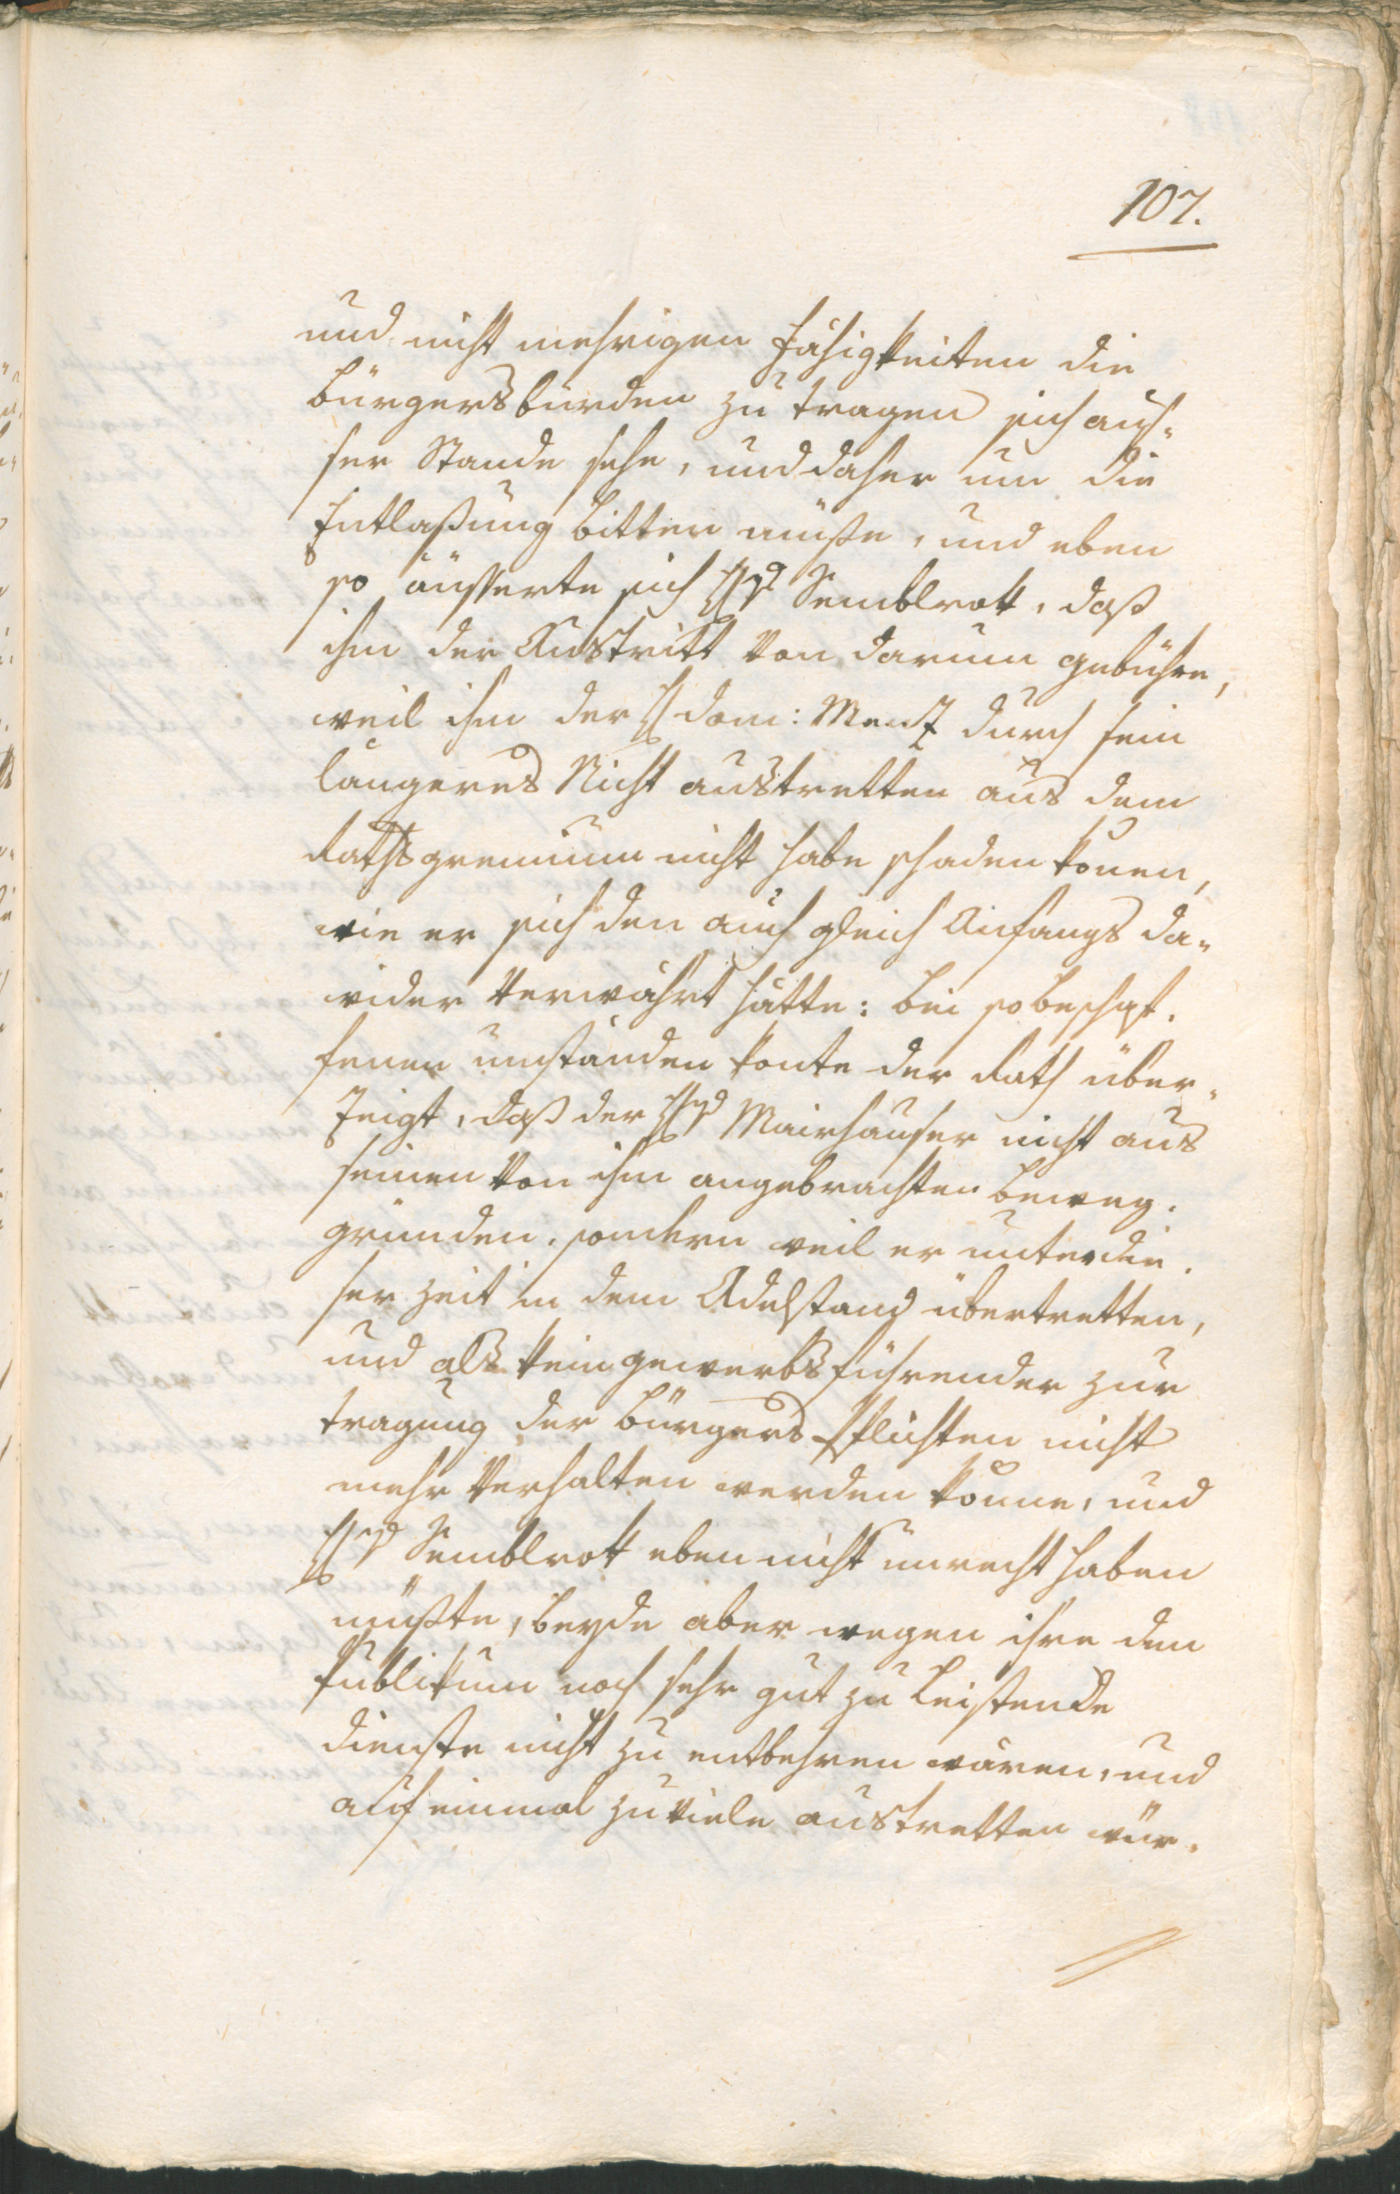 107.
und nicht mehrigen Fähigkeiten die
Bürgersbürden zu tragen sich auß„
ser Stande sehe, und daher um die
Entlaßung bitten müße, und eben
so äusserte sich Semblrok, daß
ihm der Austritt von darum gebühre,
weil ihm der H dom: Menz durch sein
längeres Nicht austretten aus dem
Rathsgremium nicht habe schaden könen,
wie er sich den auch gleich Anfangs da„
wider verwahrt hätte: bei so beschaf.
fenen umständen konte der Rath über„
zeigt, daß der Mairhauser nicht aus
seinen von ihm angebrachten beweg.
gründen, sondern weil er unter die.
ser Zeit in dem Adelstand übertretten,
und als kein gewerbsführender zur
tragung der bürgers Pflichten nicht
mehr verhalten werden könne, und
Semblrok eben nicht unrecht haben
müßte, beyde aber wegen ihre den
Publikum noch sehr gut zu Leistende
dienste nicht zu entbehren wären, und
auf einmal zu viele austretten wür.